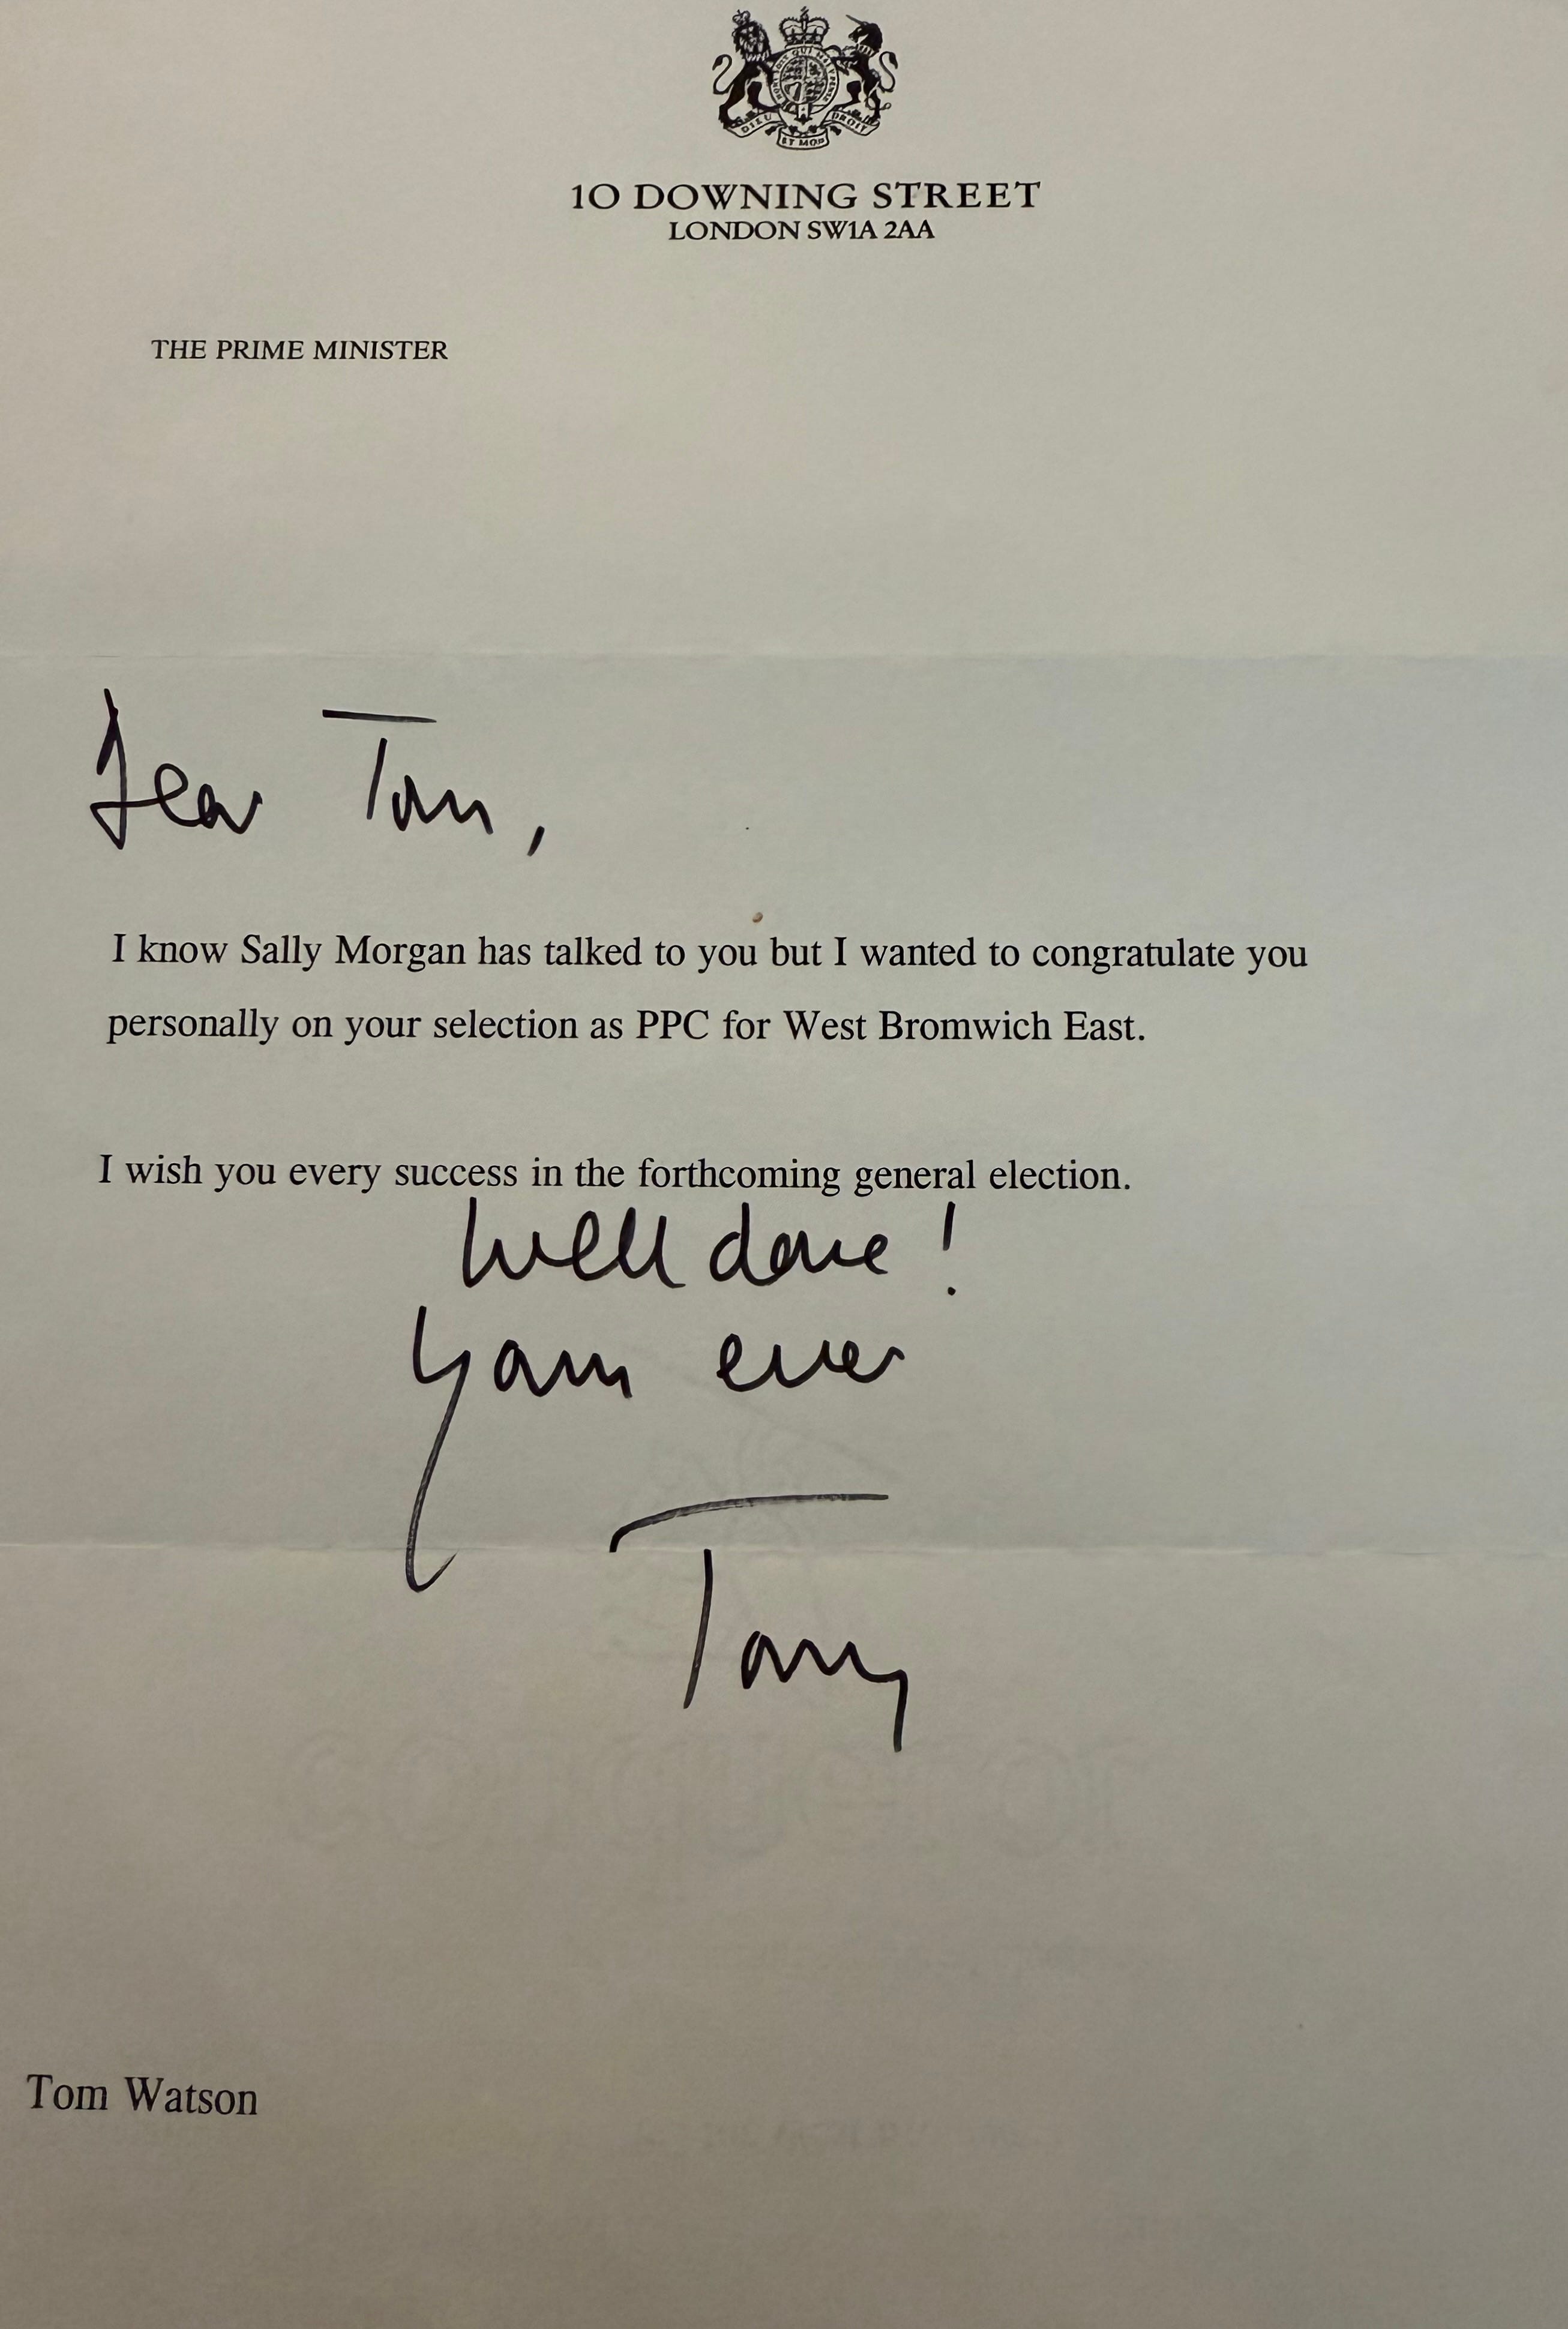 HONI SOIT QUI MAL Y PENSE
DIEU ET MON DROIT
10 DOWNING STREET
LONDON SW1A 2AA
THE PRIME MINISTER
Dear Tom,
I know Sally Morgan has talked to you but I wanted to congratulate you
personally on your selection as PPC for West Bromwich East.
I wish you every success in the forthcoming general election.
Well done!
Yours ever
Tony
Tom Watson